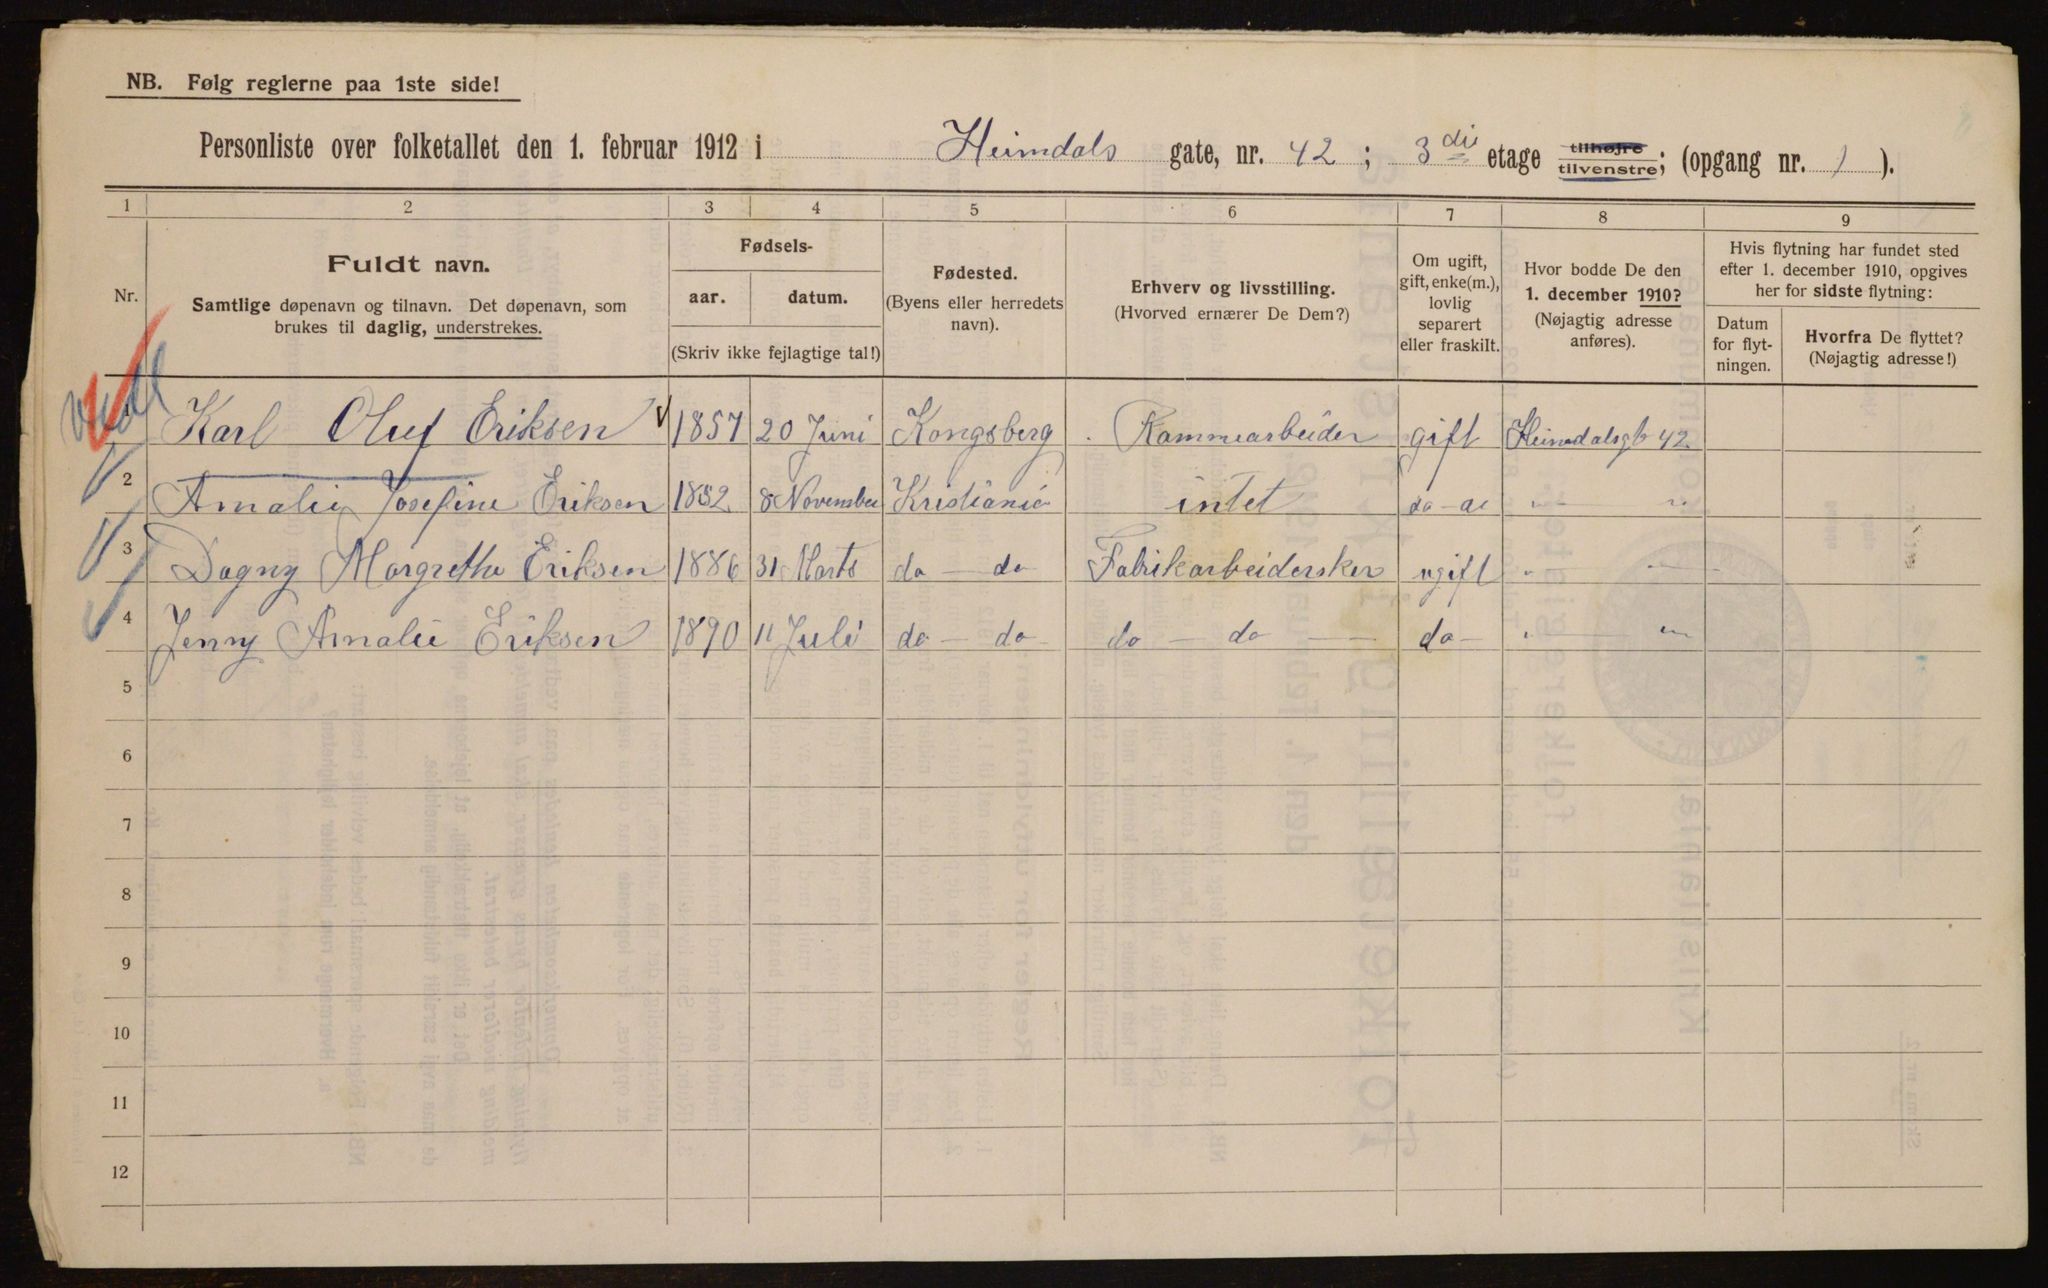 NB. Følg reglerne paa 1ste side!
Personliste over folketallet den 1. februar 1912 i Heimdals gate, nr. 42; 3die etage tilhøjre tilvenstre; (opgang nr. 1).
1 2 3 4 5 6 7 8 9
Nr.
Fuldt navn.
Samtlige døpenavn og tilnavn. Det døpenavn, som
brukes til daglig, understrekes.
Fødsels-
aar. datum.
(Skriv ikke fejlagtige tal!)
Fødested.
(Byens eller herredets
navn).
Erhverv og livsstilling.
(Hvorved ernærer De Dem?)
Om ugift,
gift, enke(m.),
lovlig
separert
eller fraskilt.
Hvor bodde De den
1. december 1910?
(Nøjagtig adresse
anføres).
Hvis flytning har fundet sted
efter 1. december 1910, opgives
her for sidste flytning:
Datum
for flyt-
ningen.
Hvorfra De flyttet?
(Nøjagtig adresse!)
1 Karl Oluf Eriksen 1857 20 Juni Kongsberg gift Heimdalsgt 42
2 Amalie Josefine Eriksen 1852 8 November Kristiania intet do - do " "
3 Dagny Margrethe Eriksen 1886 31 Marts do - do Fabrikarbeiderske ugift " "
4 Jenny Amalie Eriksen 1890 11 Juli do - do do - do do - " "
5
6
7
8
9
10
11
12